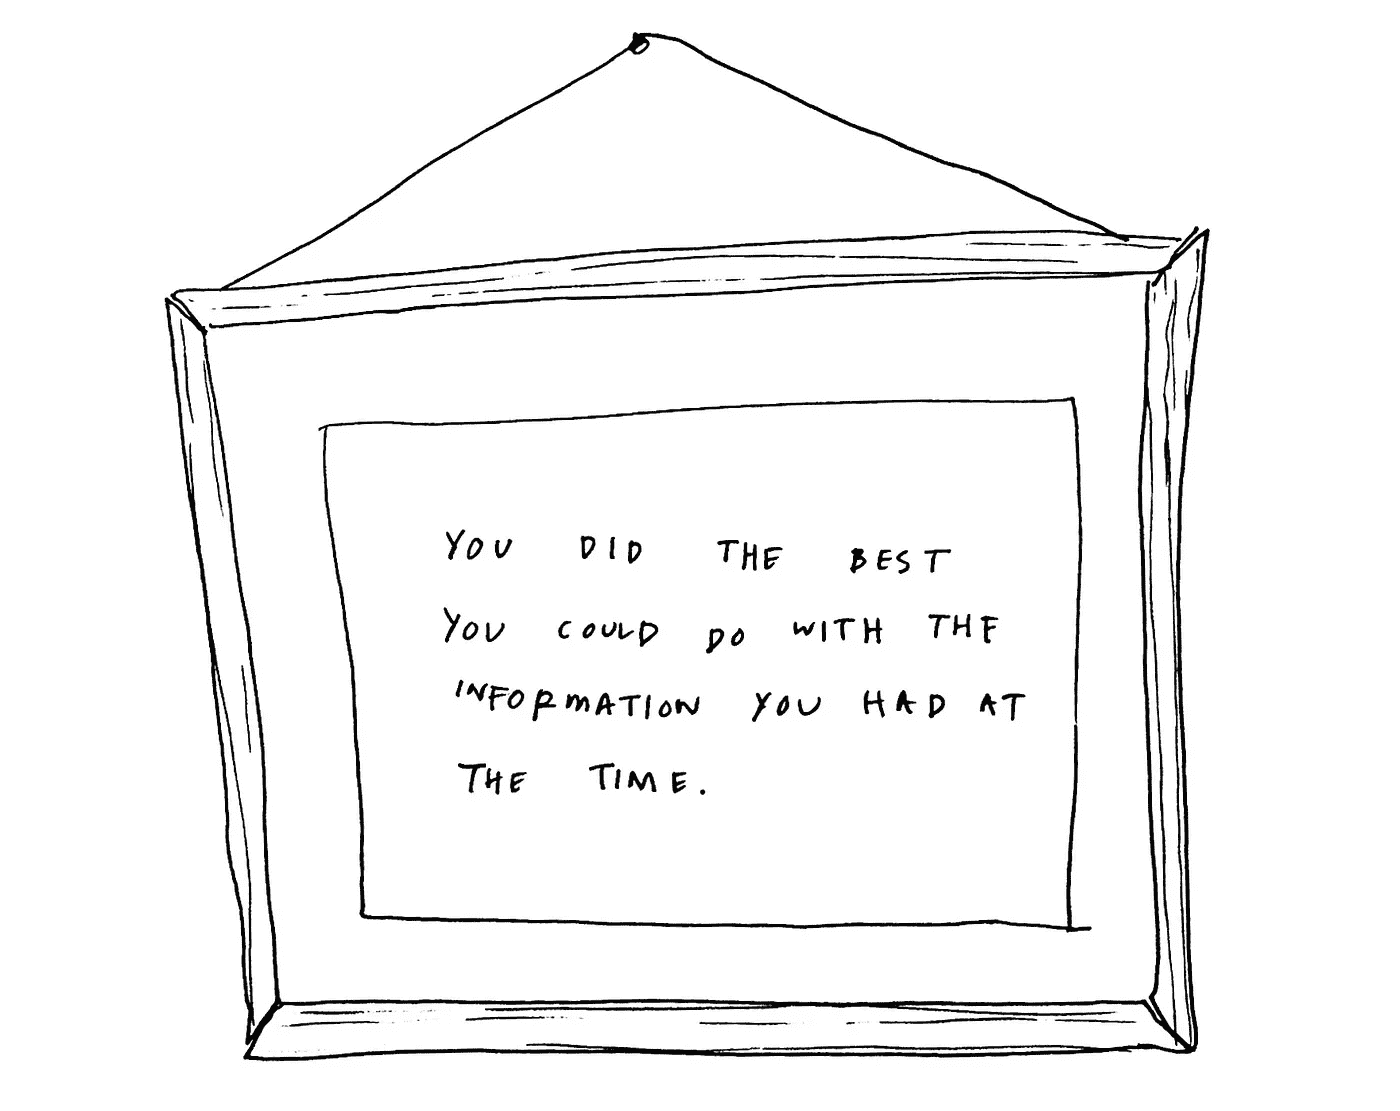 YOU DID THE BEST
YOU COULD DO WITH THE
INFORMATION YOU HAD AT
THE TIME.